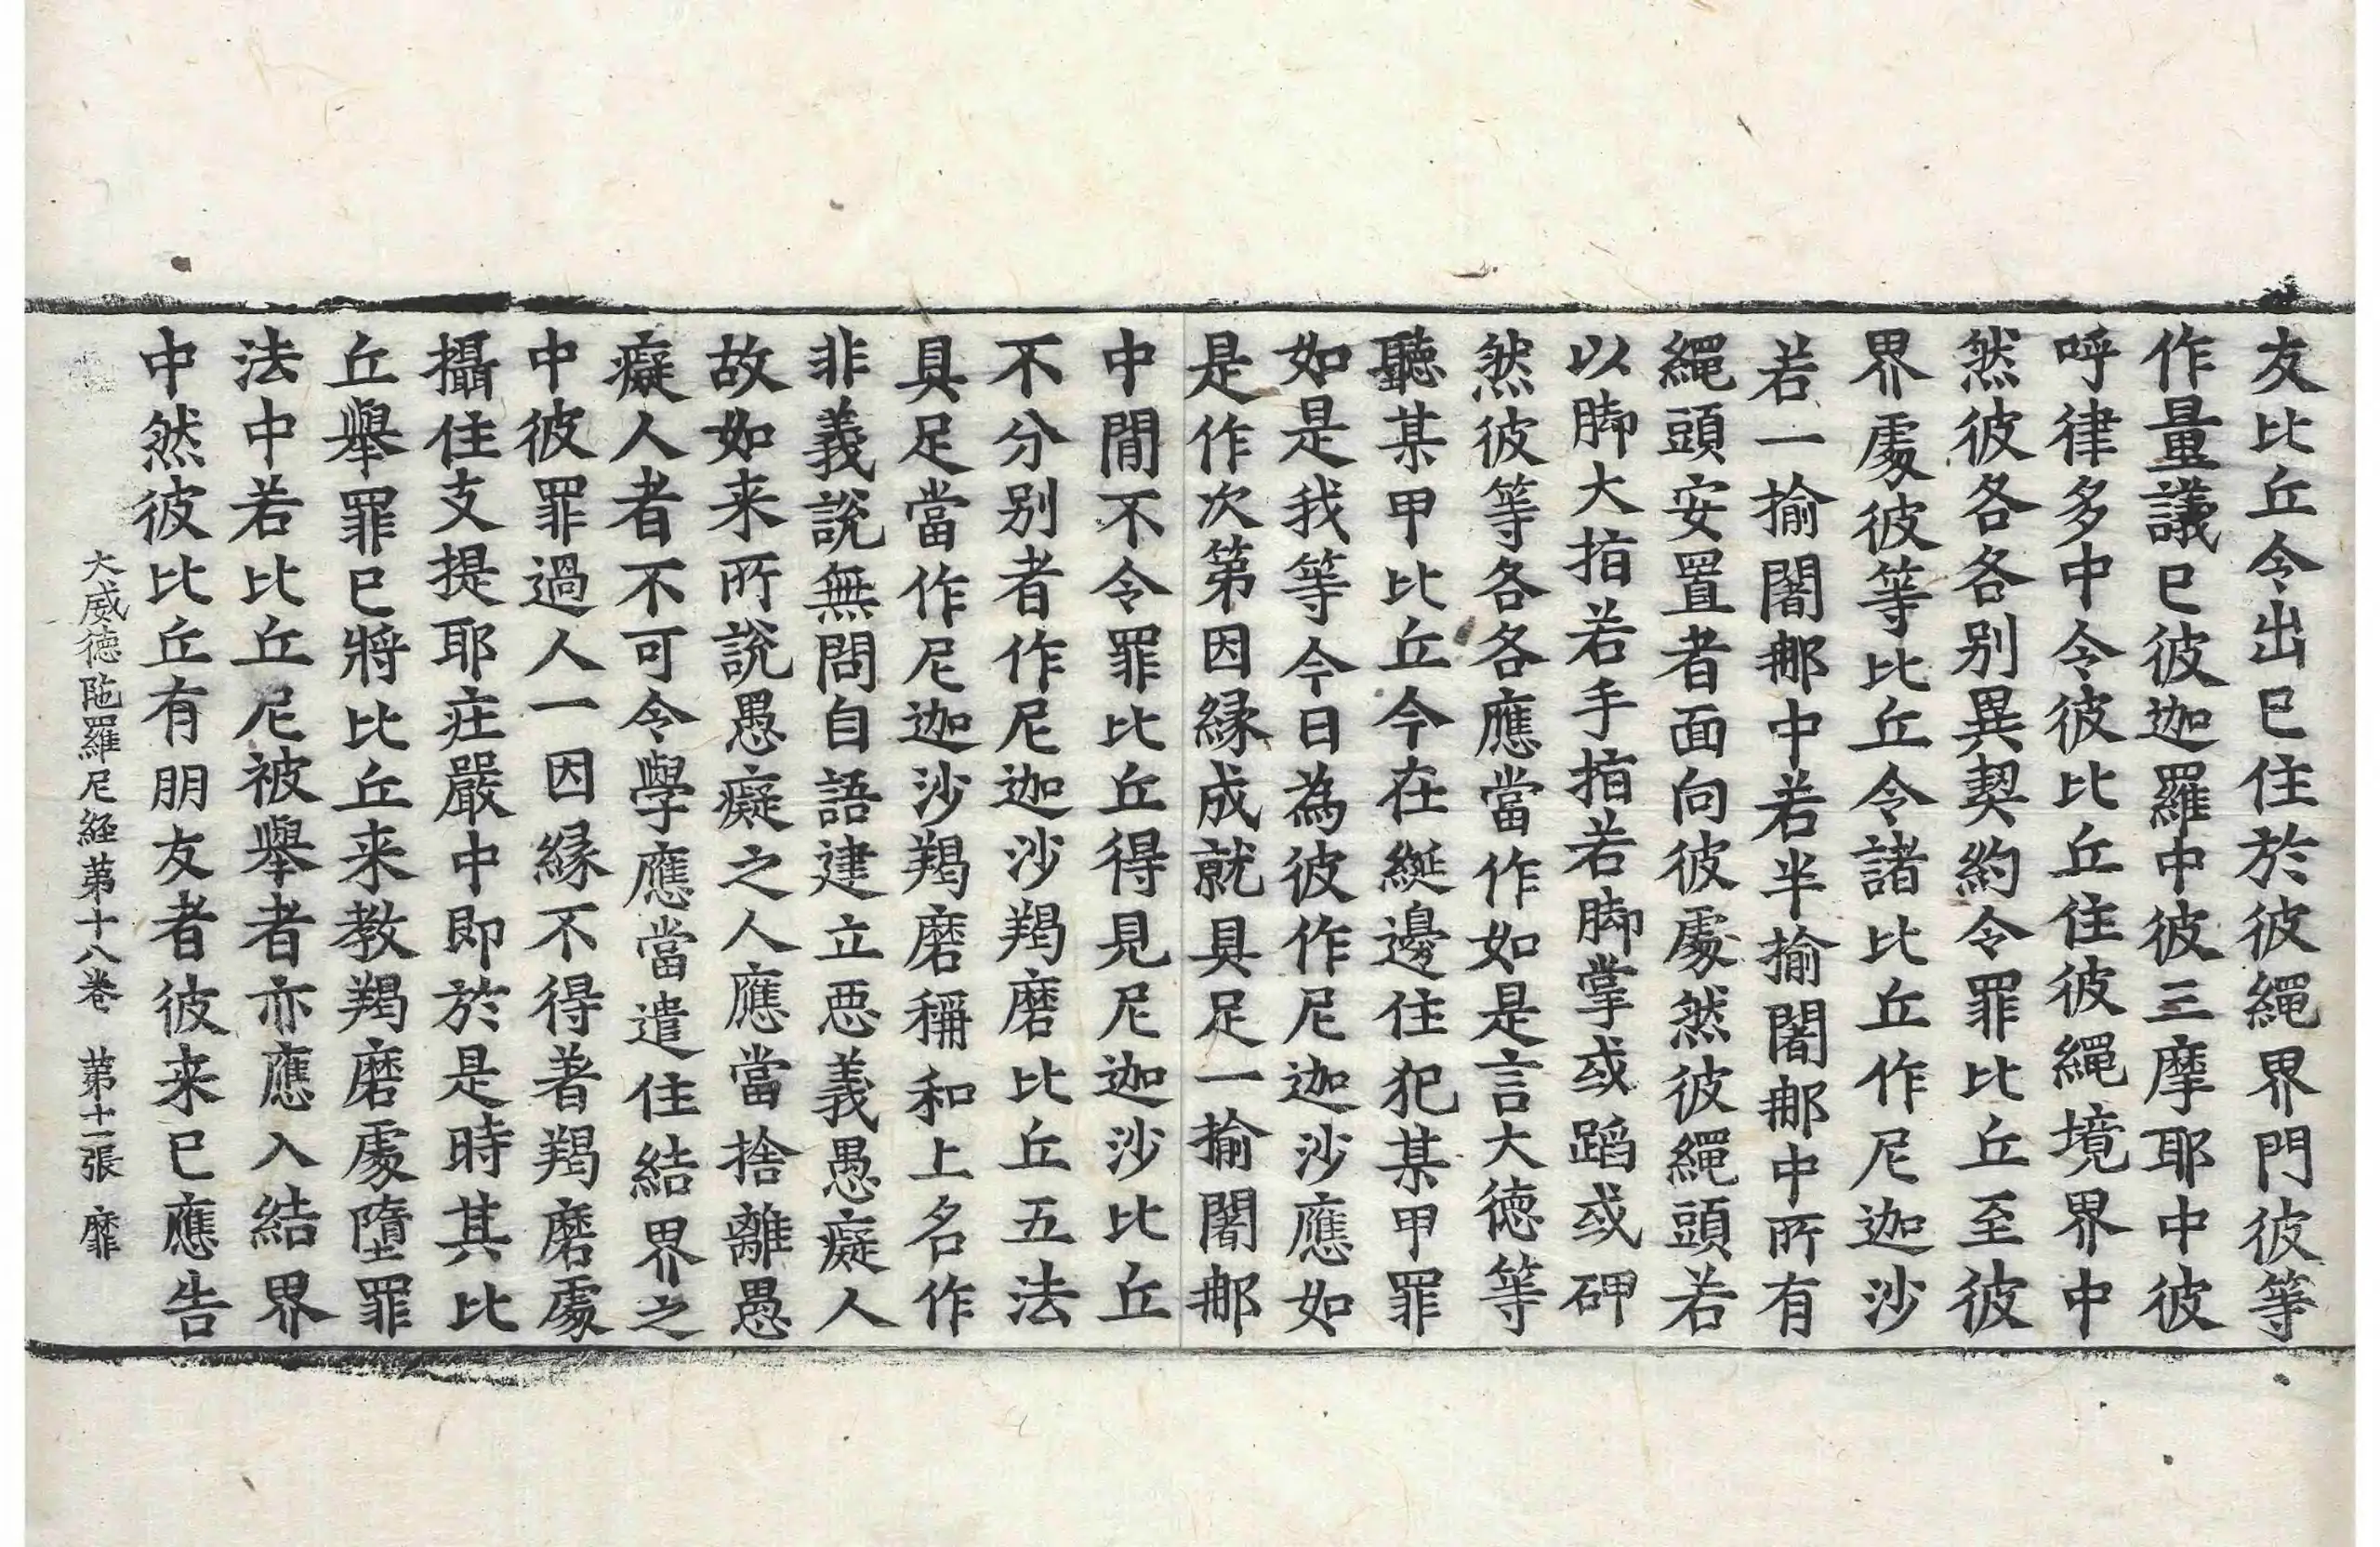 友比丘令出已住於彼繩界門彼等
作量議已彼迦羅中彼三摩耶中彼
呼律多中令彼比丘住彼繩境界中
然彼各各别異契約令罪比丘至彼
界處彼等比丘令諸比丘作尼迦沙
若一揄闍𨚗中若半揄闍𨚗中所有
繩頭安置者面向彼處然彼繩頭若
以脚大指若手指若脚掌或蹈或砰
然彼等各各應當作如是言大德等
聽某甲比丘今在綖邊住犯某甲罪
如是我等今日為彼作尼迦沙應如
是作次第因緣成就具足一揄闍𨚗
中間不令罪比丘得見尼迦沙比丘
不分别者作尼迦沙羯磨比丘五法
具足當作尼迦沙羯磨稱和上名作
非義說無問自語建立惡義愚癡人
故如来所說愚癡之人應當捨離愚
癡人者不可令學應當遣住結界之
中彼罪過人一因緣不得著羯磨處
攝住支提耶莊嚴中即於是時其比
丘舉罪已將比丘来教羯磨處墮罪
法中若比丘尼被舉者亦應入結界
中然彼比丘有朋友者彼来已應告
大威德陁羅尼經第十八卷 第十一張 靡